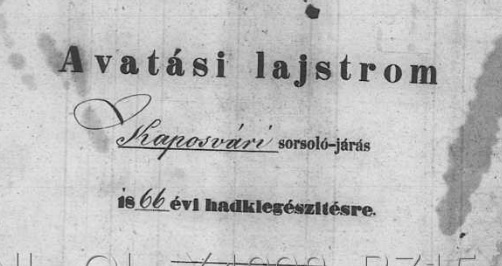 Avatási lajstrom
Kaposvári sorsoló-járás
1866 évi hadkiegészitésre.